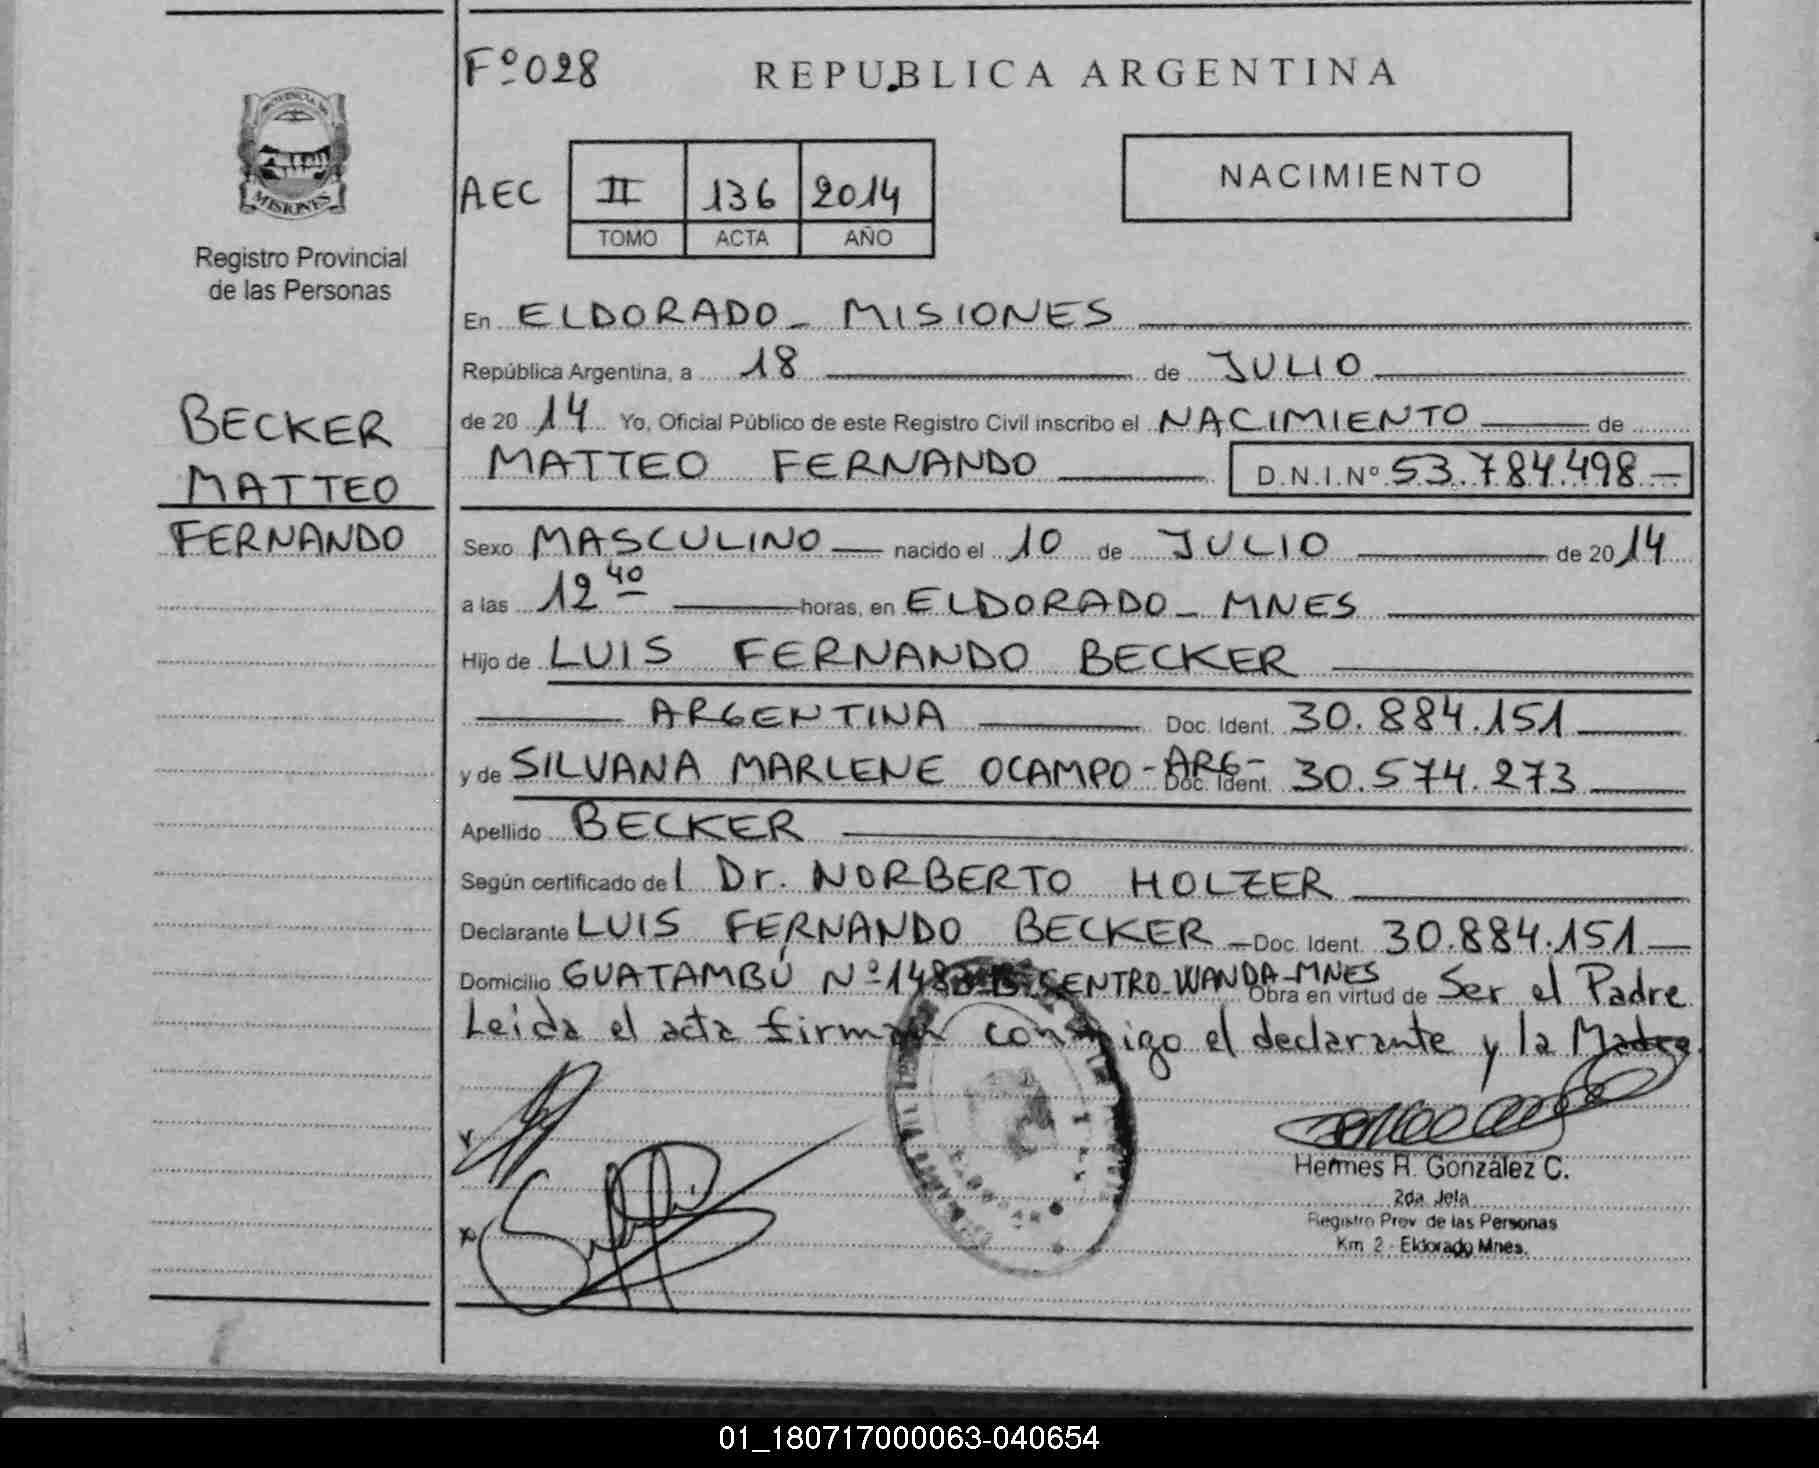 Fº 028
REPUBLICA ARGENTINA
PROVINCIA DE
MISIONES
Registro Provincial
de las Personas
AEC II 136 2014
TOMO ACTA AÑO
NACIMIENTO
BECKER
MATTEO
FERNANDO
En ELDORADO - MISIONES
República Argentina, a 18 de JULIO
de 2014 Yo, Oficial Público de este Registro Civil inscribo el NACIMIENTO de
MATTEO FERNANDO D.N.I.Nº 53.784.498.-
Sexo MASCULINO nacido el 10 de JULIO de 2014
a las 12 40 horas, en ELDORADO - MNES
Hijo de LUIS FERNANDO BECKER
ARGENTINA Doc. Ident. 30.884.151
y de SILVANA MARLENE OCAMPO - ARG - Doc. Ident. 30.574.273
Apellido BECKER
Según certificado del Dr. NORBERTO HOLZER
Declarante LUIS FERNANDO BECKER Doc. Ident. 30.884.151
Domicilio GUATAMBÚ Nº CENTRO - WANDA - MNES Obra en virtud de Ser el Padre
Leida el acta firman conmigo el declarante y la Madre.
Hermes R. González C.
2da. Jefa
Registro Prov. de las Personas
Km 2 - Eldorado Mnes.
01_180717000063-040654